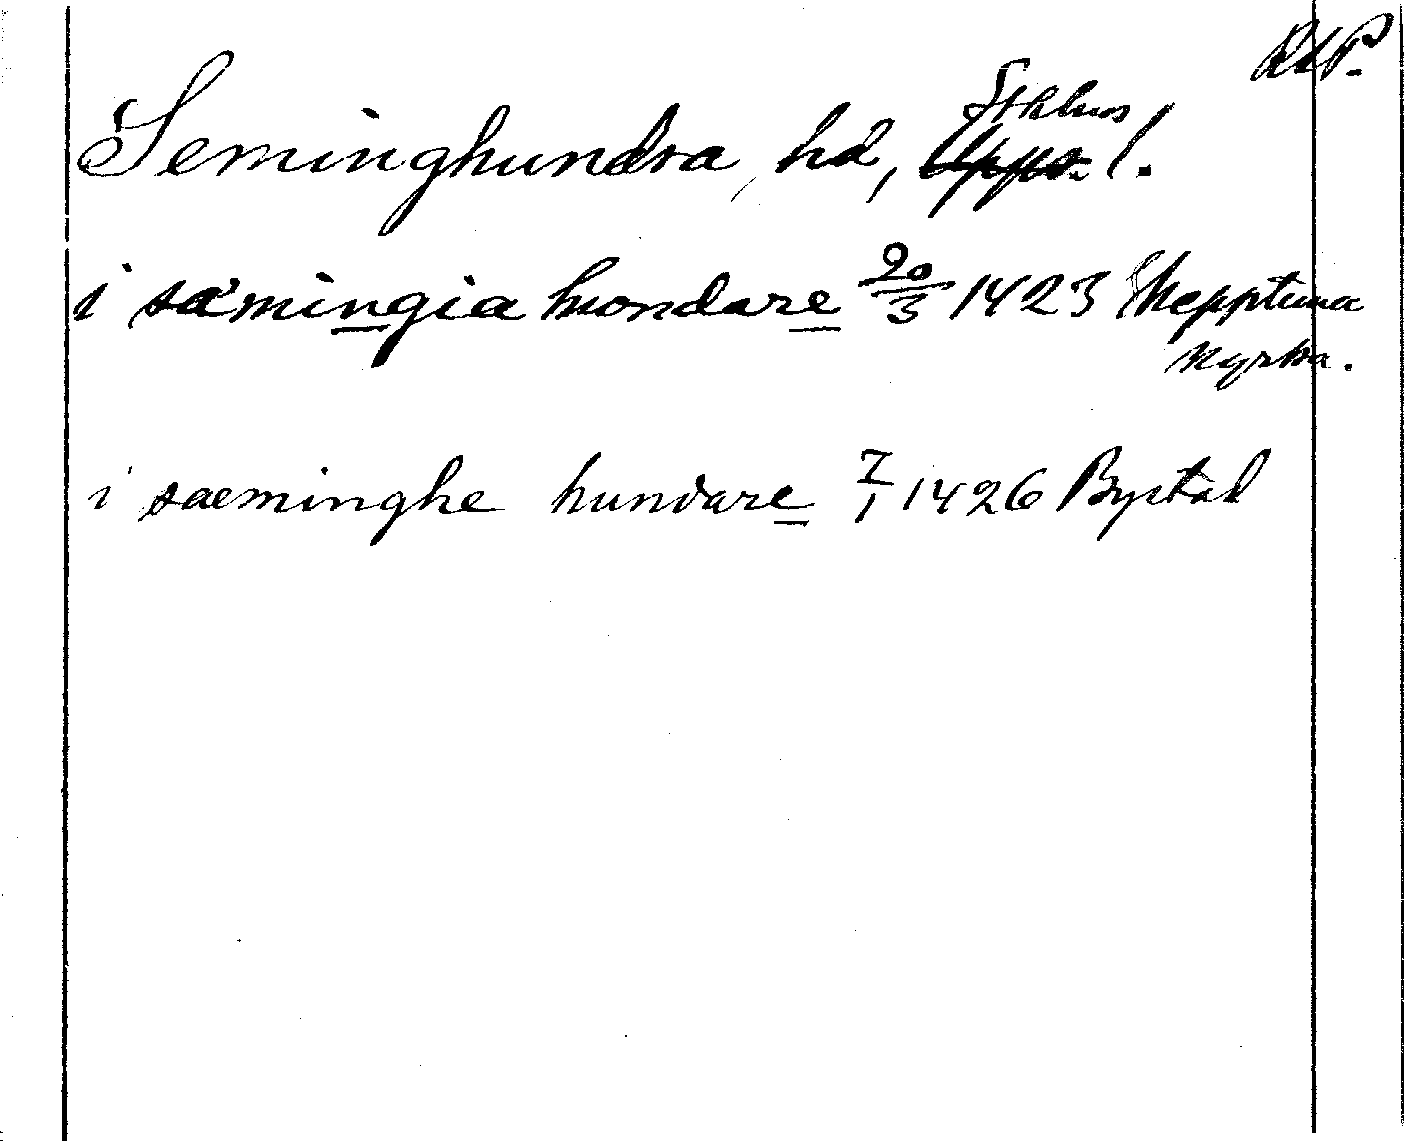 RAP.
Seminghundra, hd, Sthlms Upps. l.
i sæmingia hondare 20/3 1423 Skepptuna
kyrka.
i sæminghe hundare 7/1 1426 Bystad